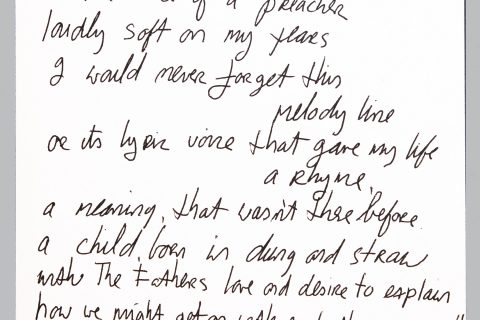 of a preacher
loudly soft on my tears
I would never forget this
melody line
or its lyric voice that gave my life
a rhyme,
a meaning, that wasn't there before.
a child, born in dung and straw
with The Fathers love and desire to explain
how we might get on with